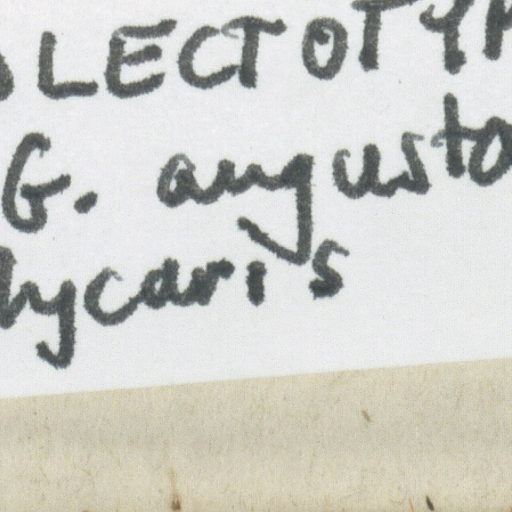 LECTOTYP
G. augusto
lycaris